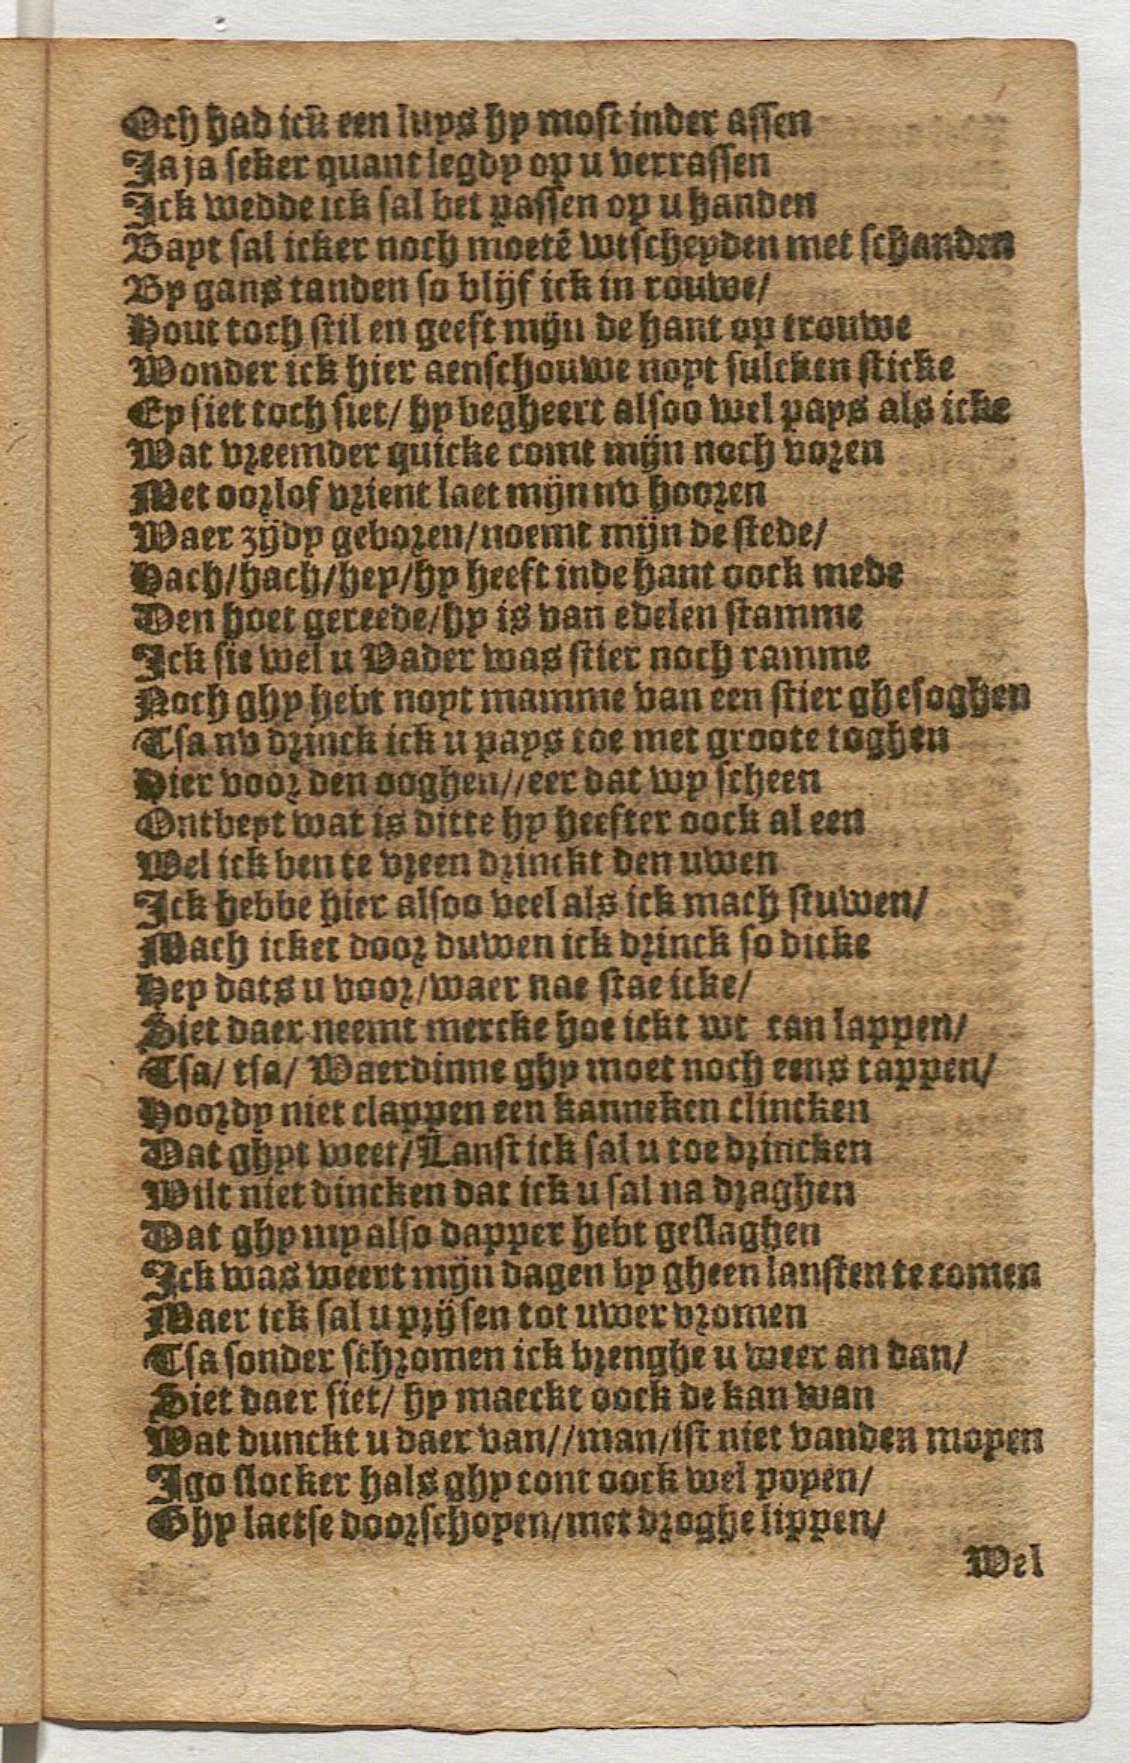 Och had ick een luys hy most inder assen
Ja ja seker quant legdy op u verrassen
Ick wedde ick sal het passen op u handen
Bayt sal icker noch moetẽ wtscheyden met schanden
By gans tanden so blijf ick in rouwe/
Hout toch stil en geeft mijn de hant op trouwe
Wonder ick hier aenschouwe noyt sulcken sticke
Ey siet toch siet/ hy begheert alsoo wel pays als icke
Wat vreemder quicke comt mijn noch voren
Met oorlof vrient laet mijn nv hooren
Waer zijdy geboren/noemt mijn de stede/
Hach/hach/hey/hy heeft inde hant oock mede
Den hoet gereede/hy is van edelen stamme
Ick sie wel u Vader was stier noch ramme
Noch ghy hebt noyt mamme van een stier ghesoghen
Tsa nv drinck ick u pays toe met groote toghen
Hier voor den ooghen//eer dat wy scheen
Ontbeyt wat is ditte hy heefter oock al een
Wel ick ben te vreen drinckt den uwen
Ick hebbe hier alsoo veel als ick mach stuwen/
Mach icket door duwen ick drinck so dicke
Hey dats u voor/waer nae stae icke/
Siet daer neemt mercke hoe ickt wt can lappen/
Tsa/ tsa/ Waerdinne ghy moet noch eens tappen/
Hoordy niet clappen een kanneken clincken
Dat ghyt weet/Lanst ick sal u toe drincken
Wilt niet dincken dat ick u sal na draghen
Dat ghy my also dapper hebt geslaghen
Ick was weert mijn dagen by gheen lansten te comen
Maer ick sal u prijsen tot uwer vromen
Tsa sonder schromen ick brenghe u weer an dan/
Siet daer siet/ hy maeckt oock de kan wan
Wat dunckt u daer van//man/ist niet vanden moyen
Jgo slocker hals ghy cont oock wel poyen/
Ghy laetse doorschoyen/met droghe lippen/
Wel